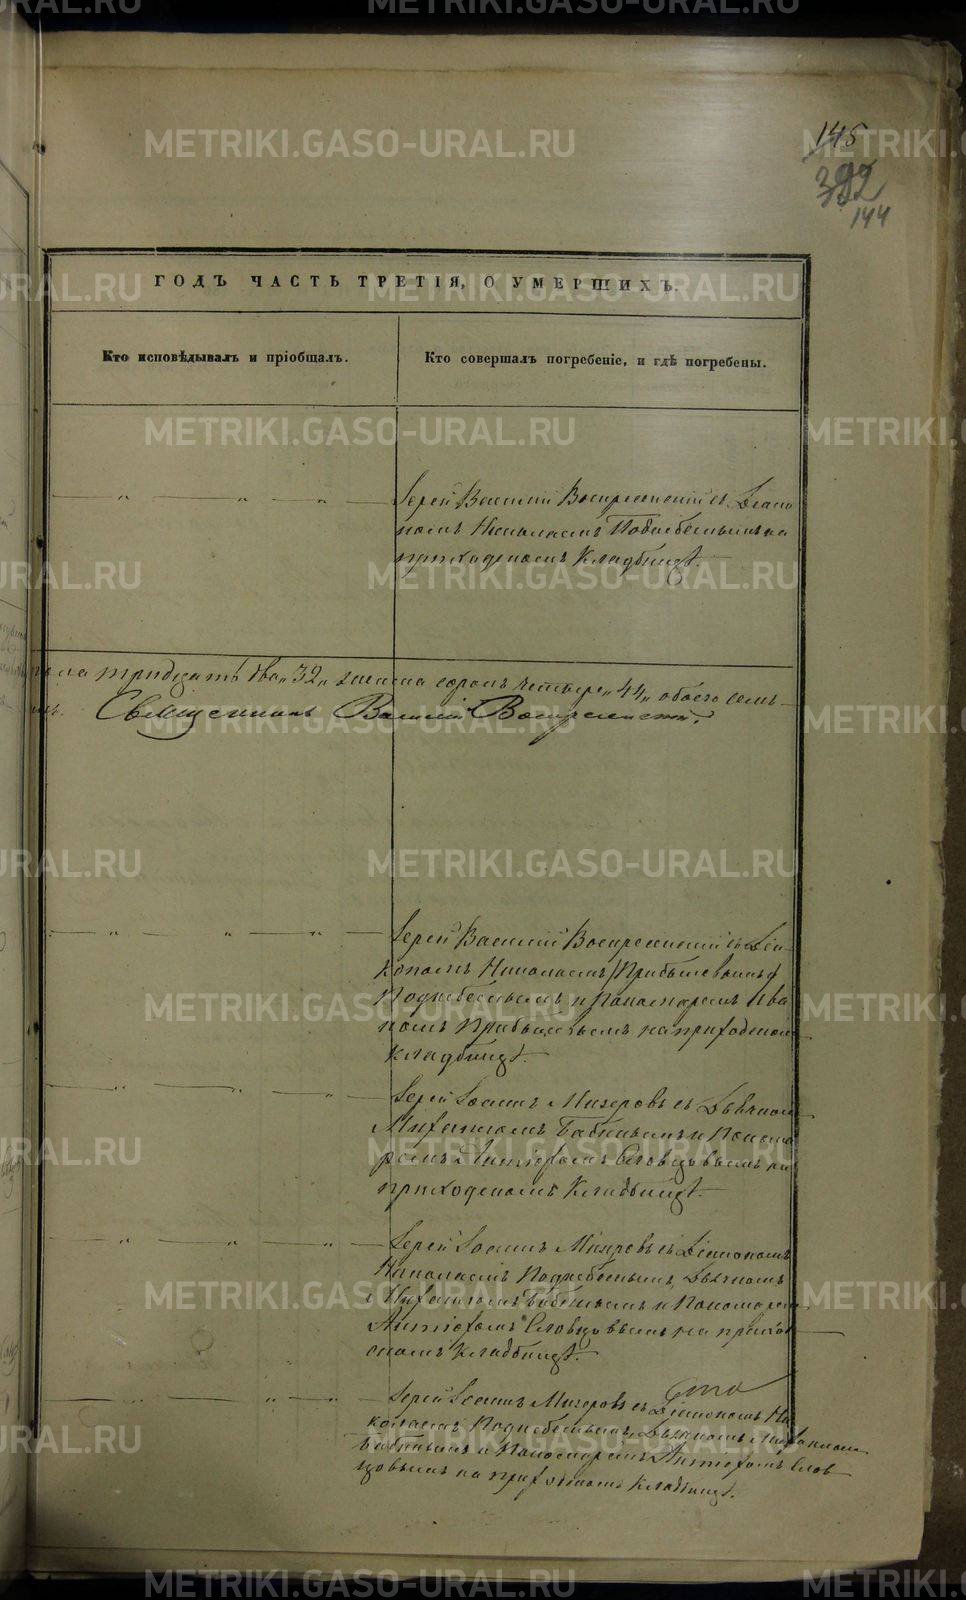 145
392
144
ГОДЪ ЧАСТЬ ТРЕТІЯ, О УМЕРШИХЪ.
Кто исповѣдывалъ и пріобщалъ.
Кто совершалъ погребеніе, и гдѣ погребены.
Іерей Василій Воскресенскій съ Діако
номъ Николаемъ на
приходскомъ кладбищѣ.
тридцать два „32„ женска сорокъ четыре „44„ обоего семь-
Священникъ Василій Воскресенскій.
Іерей Василій Воскресенскій съ Діа-
кономъ Николаемъ
Поднебеснымъ и Пономаремъ Ива
номъ Прибылевымъ на приходскомъ
кладбищѣ.
Іерей Іоаннъ Мизеровъ съ Дьячкомъ
Бабинымъ и Понома
ремъ Словцовымъ на
приходскомъ кладбищѣ.
Іерей Іоаннъ Мизеровъ съ Діакономъ
Николаемъ Поднебеснымъ, Дьячкомъ
Бабинымъ и Пономаремъ
Словцовымъ на приход
скомъ кладбищѣ.
Іерей Іоаннъ Мизеровъ съ Діакономъ Ни
колаемъ Поднебеснымъ, Дьячкомъ
Бабинымъ и Пономаремъ Слов
цовымъ на приходскомъ кладбищѣ.
METRIKI.GASO-URAL.RU